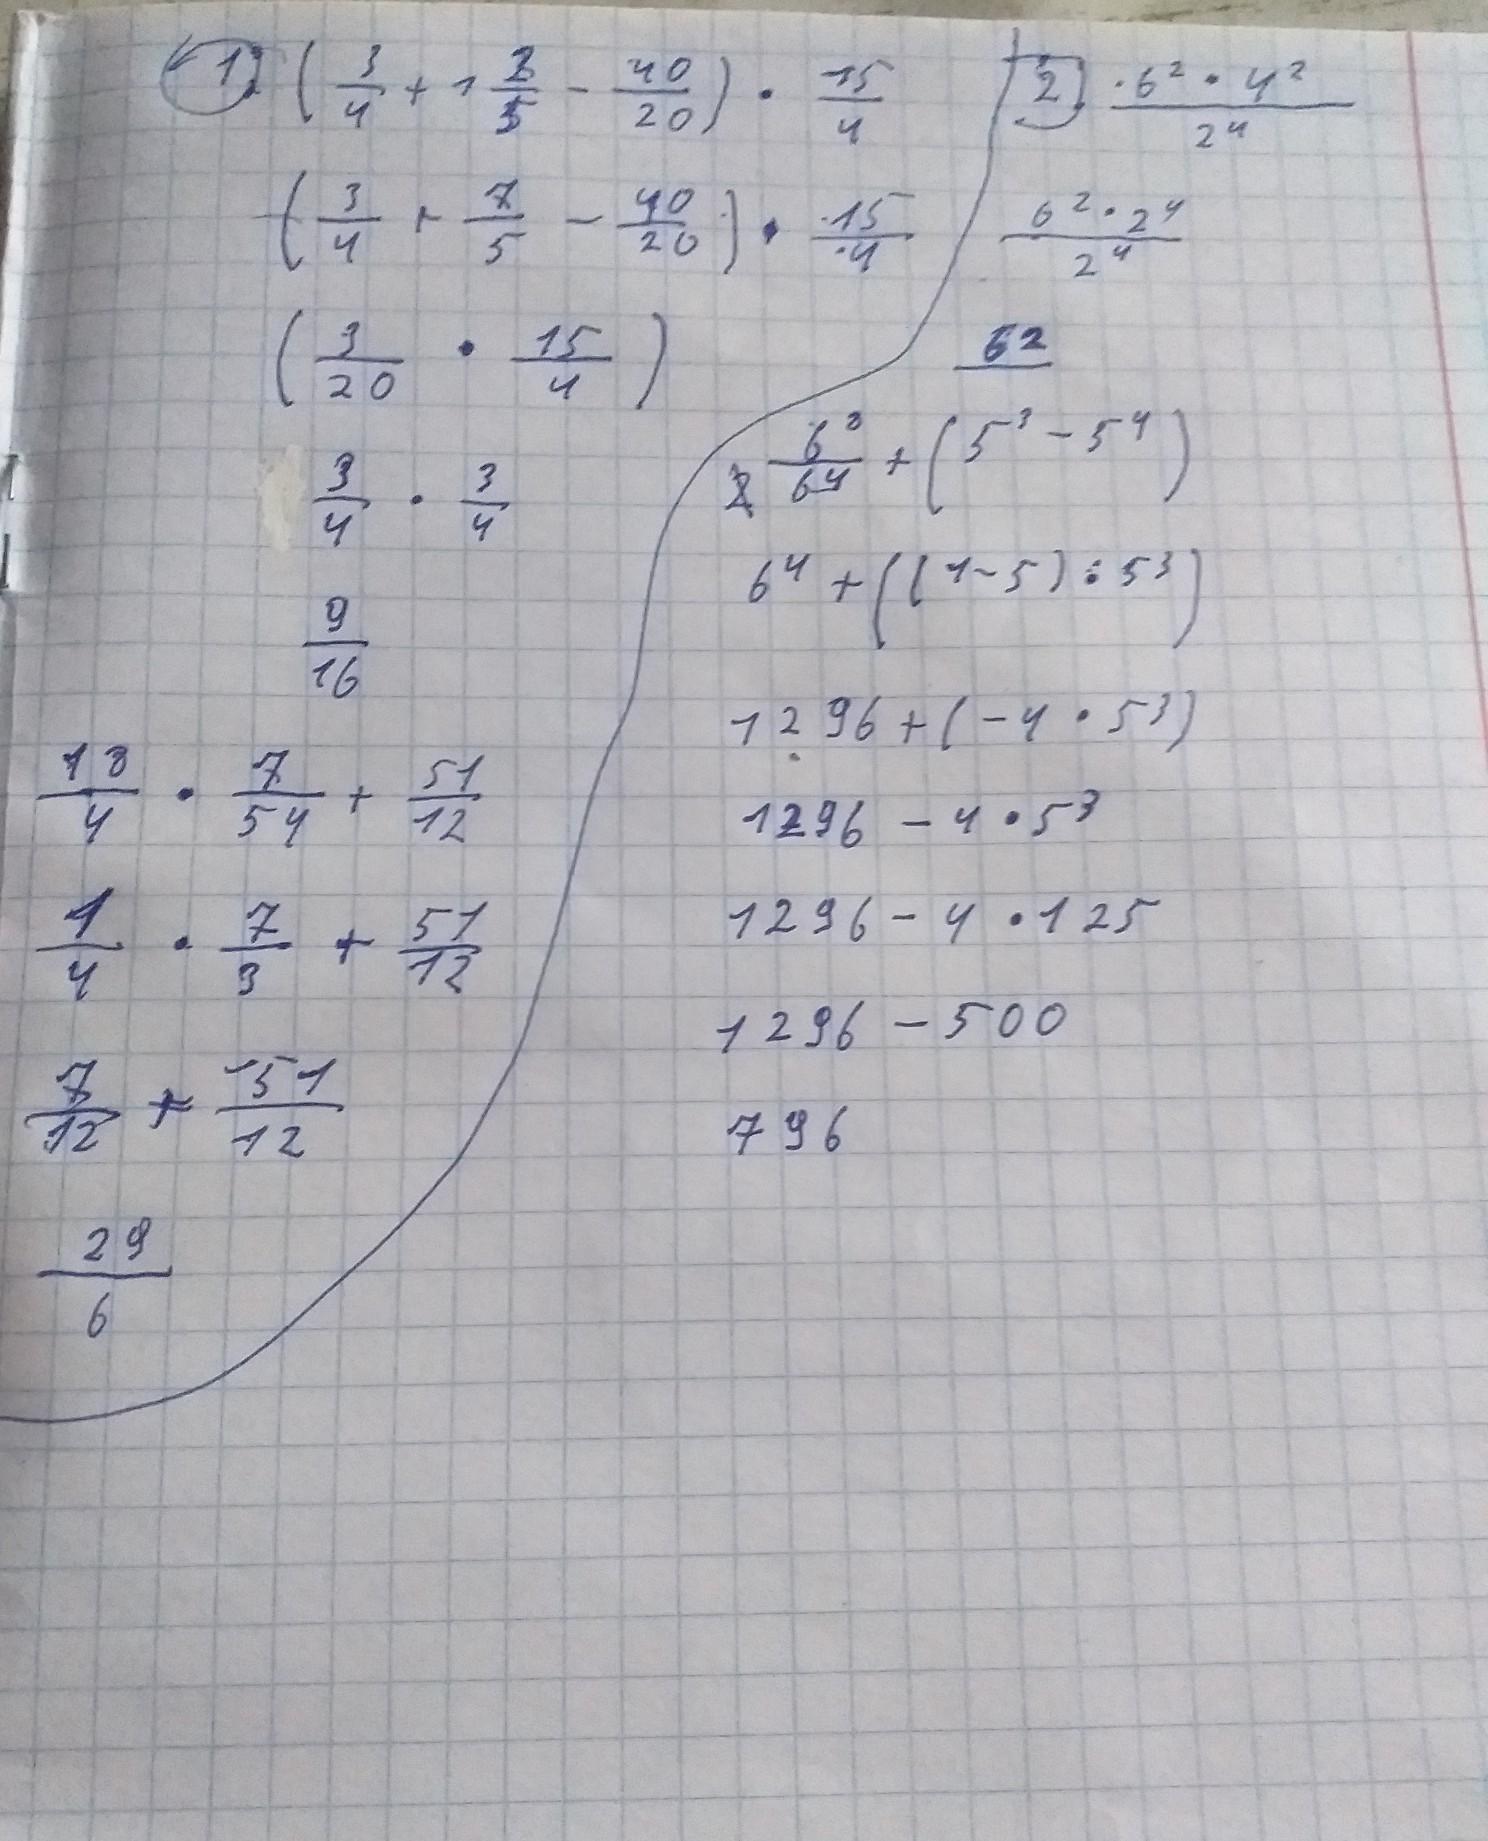 1) (3/4 + 1 2/5 - 40/20) · 15/4
(3/4 + 7/5 - 40/20) · 15/4
(3/20 · 15/4)
3/4 · 3/4
9/16
18/4 · 7/54 + 51/12
1/4 · 7/3 + 51/12
7/12 + 51/12
29/6
2) 6² · 4² / 2⁴
6² · 2⁴ / 2⁴
6²
6⁸/6⁴ + (5³ - 5⁴)
6⁴ + ((1-5) · 5³)
1296 + (-4 · 5³)
1296 - 4 · 5³
1296 - 4 · 125
1296 - 500
796